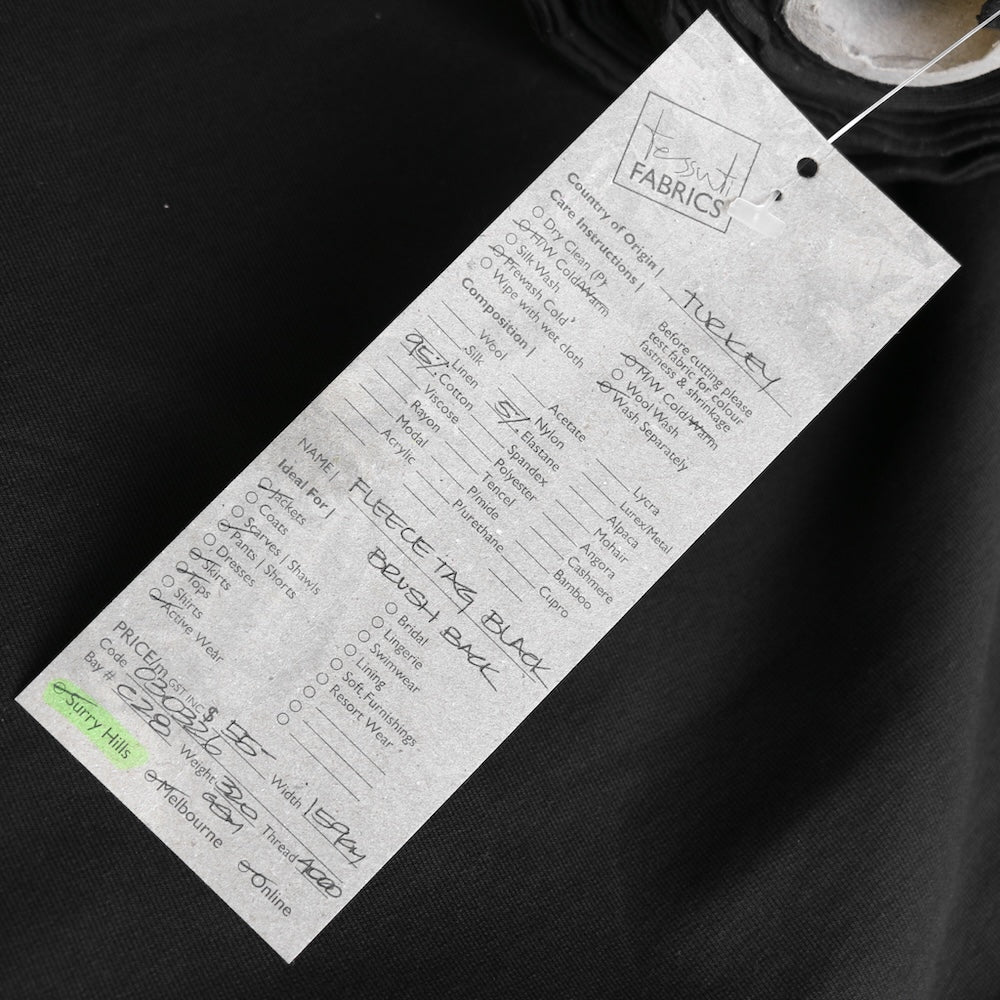 tessuti
FABRICS
Country of Origin | TURKEY
Care Instructions |
Before cutting please
test fabric for colour
fastness & shrinkage
Dry Clean (P)
H/W Cold/Warm
Silk Wash
Prewash Cold
Wipe with wet cloth
M/W Cold/Warm
Wool Wash
Wash Separately
Composition |
Wool
Silk
Linen
95% Cotton
Viscose
Rayon
Modal
Acrylic
Acetate
Nylon
5% Elastane
Spandex
Polyester
Tencel
P/mide
P/urethane
Lycra
Lurex/Metal
Alpaca
Mohair
Angora
Cashmere
Bamboo
Cupro
NAME | FLEECE TAG BLACK
BRUSH BACK
Ideal For |
Jackets
Coats
Scarves | Shawls
Pants | Shorts
Dresses
Skirts
Tops
Shirts
Active Wear
Bridal
Lingerie
Swimwear
Lining
Soft Furnishings
Resort Wear
PRICE/m GST INC $ 55-
Width
Code 030326
Weight 320 GSM
Thread 4000
Bay # C28
Surry Hills
Melbourne
Online